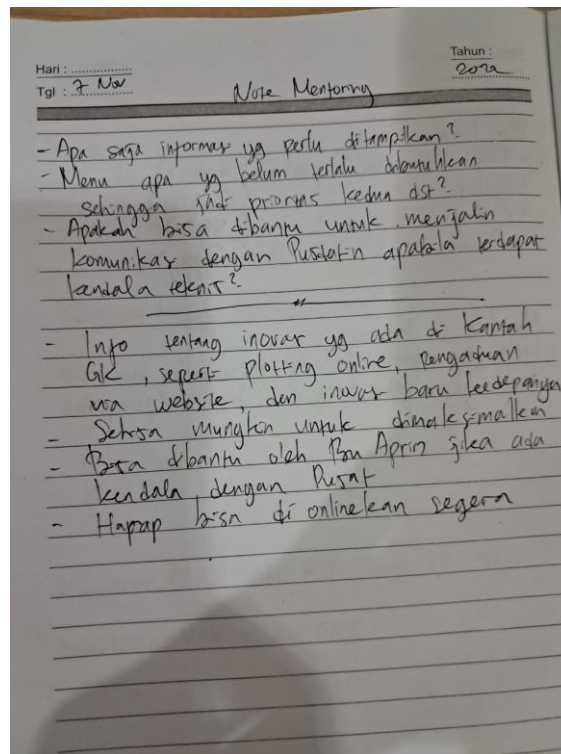 Hari : ............... Tahun :
Tgl : 7 Nov 2022
Note Mentoring
- Apa saja informasi yg perlu ditampilkan?
- Menu apa yg belum terlalu dibutuhkan
sehingga jadi prioritas kedua dst?
- Apakah bisa dibantu untuk menjalin
komunikasi dengan Pusdatin apabila terdapat
kendala teknis?
- Info tentang inovasi yg ada di Kantah
GK, seperti plotting online, pengaduan
via website, dan inovasi baru kedepannya
- Sebisa mungkin untuk dimaksimalkan
- Bisa dibantu oleh Bu Aprin jika ada
kendala dengan Pusat
- Harap bisa di onlinekan segera